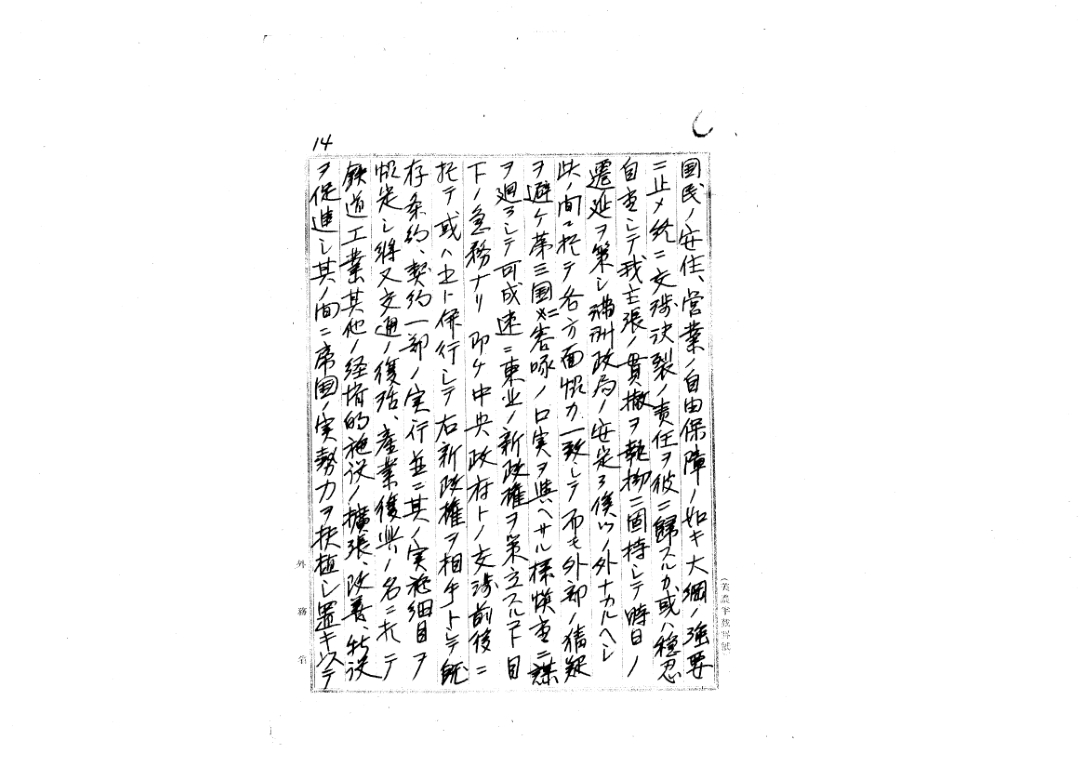 14
国民ノ安住、営業ノ自由保障ノ如キ大綱ノ強要
ニ止メ然ニ交渉決裂ノ責任ヲ彼ニ歸スルカ或ハ穏忍
自重シテ我主張ノ貫撤ヲ執拗ニ固持シテ時日ノ
遷延ヲ策シ満洲政局ノ安定ヲ俟ツノ外ナカルヘシ
此ノ間ニ於テ各方面協力一致シテ而モ外部ノ猜疑
ヲ避ケ第三国ニ容喙ノ口実ヲ與ヘサル様慎重ニ謀
ヲ廻ラシテ可成速ニ東北ノ新政権ヲ策立スルコト目
下ノ急務ナリ 即チ中央政府トノ交渉前後ニ
於テ或ハ之ト併行シテ右新政権ヲ相手トシテ既
存条約、契約一部ノ実行並ニ其ノ実施細目ヲ
協定シ將又交通ノ復活、産業復興ノ名ニ於テ
鉄道工業其他ノ経済的施設ノ擴張、改善、新設
ヲ促進シ其ノ間ニ帝国ノ実勢力ヲ扶植シ置キ
外務省